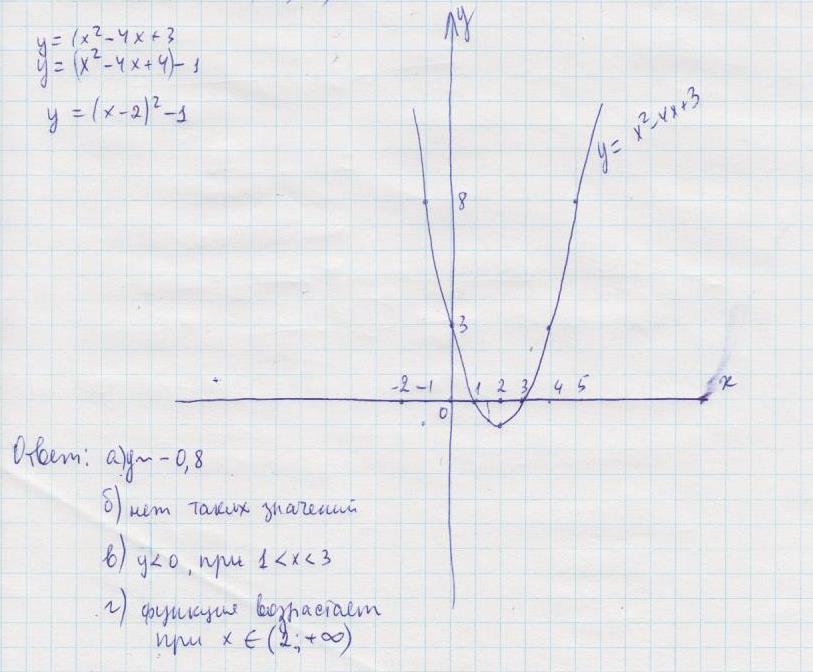 y = (x² - 4x + 3
y = (x² - 4x + 4) - 1
y = (x - 2)² - 1
y
y = x² - 4x + 3
8
3
-2 -1 1 2 3 4 5 x
0
Ответ: а) y ~ - 0,8
б) нет таких значений
в) y < 0, при 1 < x < 3
г) функция возрастает
при x ∈ (2; +∞)